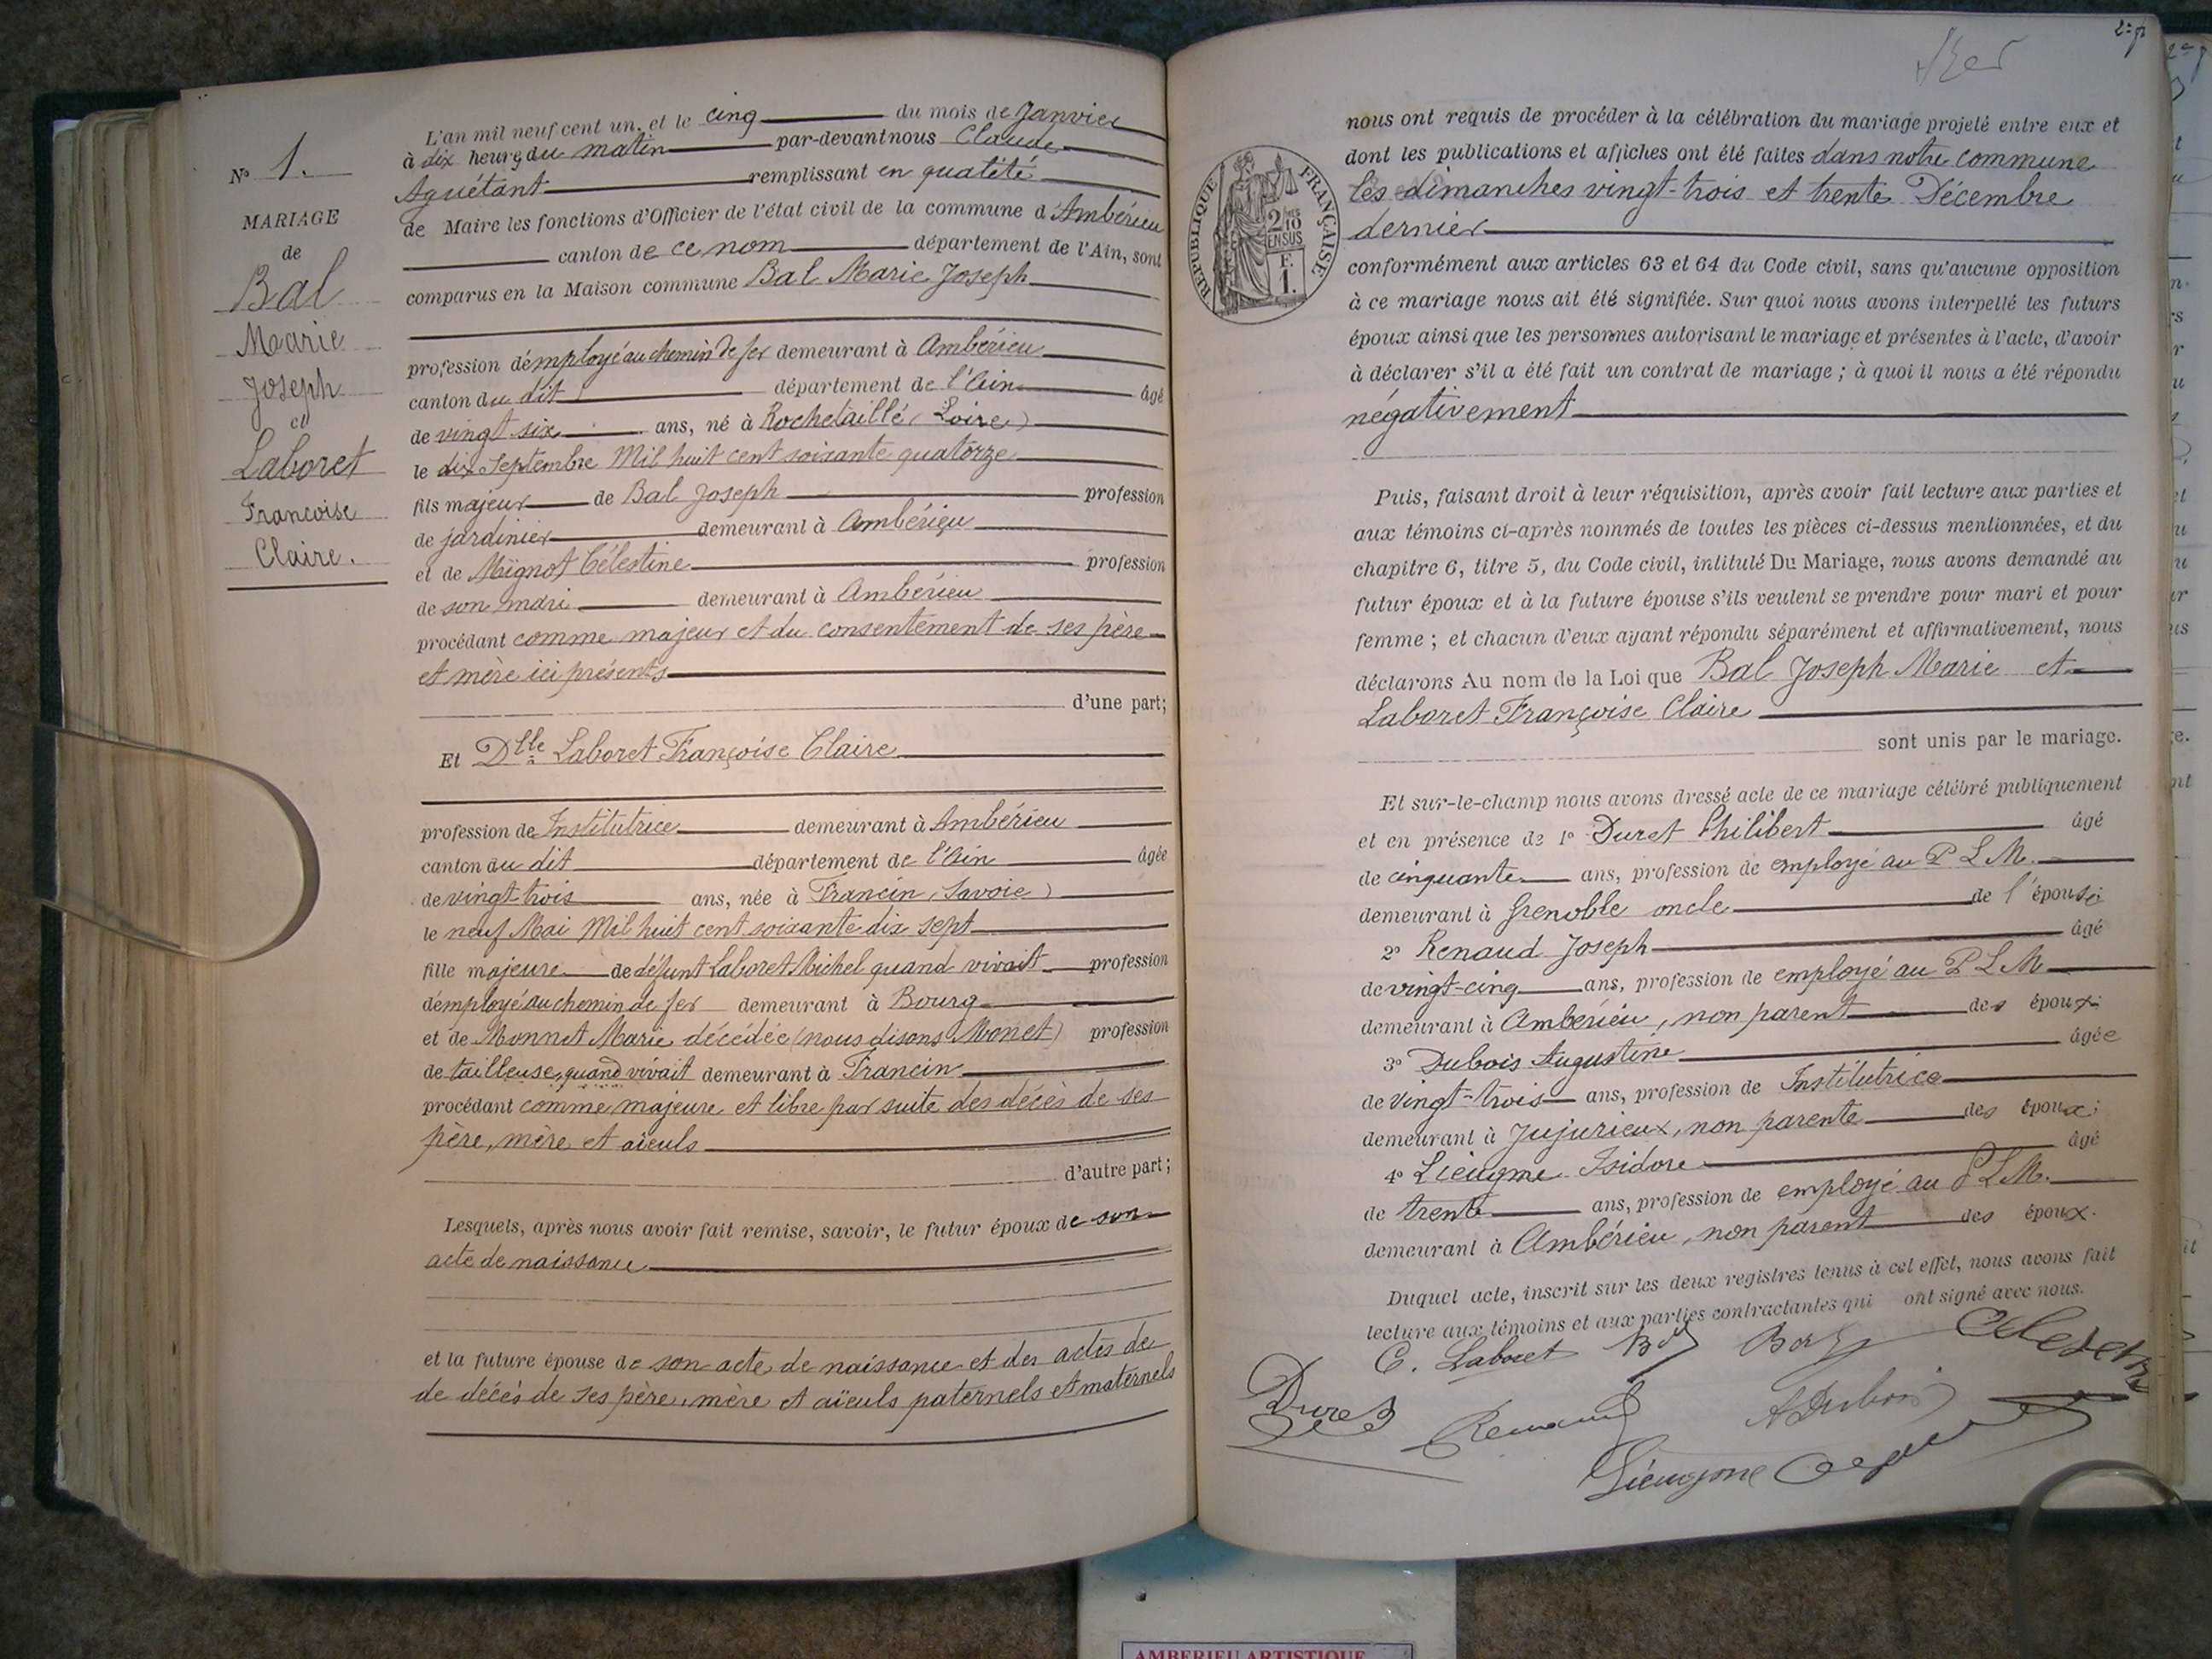 Nº 1.
MARIAGE
de
Bal
Marie
Joseph
et
Laboret
Francoise
Claire.
L'an mil neuf cent un, et le cinq du mois de Janvier
à dix heures du matin par-devant nous Claude
Aguétant remplissant en qualité
de Maire les fonctions d'Officier de l'état civil de la commune d'Ambérieu
canton de ce nom département de l'Ain, sont
comparus en la Maison commune Bal Marie Joseph
profession d'employé au chemin de fer demeurant à Ambérieu
canton du dit département de l'Ain âgé
de vingt six ans, né à Rochetaillé (Loire)
le dix Septembre Mil huit cent soixante quatorze
fils majeur de Bal Joseph profession
de jardinier demeurant à Ambérieu
et de Mignot Célestine profession
de son mari demeurant à Ambérieu
procédant comme majeur et du consentement de ses père
et mère ici présents
d'une part;
Et Dlle Laboret Françoise Claire
profession de Institutrice demeurant à Ambérieu
canton du dit département de l'Ain âgée
de vingt trois ans, née à Francin (Savoie)
le neuf Mai Mil huit cent soixante dix sept
fille majeure de défunt Laboret Michel quand vivait profession
d'employé au chemin de fer demeurant à Bourg
et de Monnet Marie décédée (nous disons Monet) profession
de tailleuse, quand vivait demeurant à Francin
procédant comme majeure et libre par suite des décès de ses
père, mère et aïeuls
d'autre part;
Lesquels, après nous avoir fait remise, savoir, le futur époux de son
acte de naissance
et la future épouse de son acte de naissance et des actes de
de décès de ses père, mère et aïeuls paternels et maternels
2e p
nous ont requis de procéder à la célébration du mariage projeté entre eux et
dont les publications et affiches ont été faites dans notre commune
les dimanches vingt-trois et trente Décembre
dernier
RÉPUBLIQUE FRANÇAISE
2/10 ENSUS
F. 1.
conformément aux articles 63 et 64 du Code civil, sans qu'aucune opposition
à ce mariage nous ait été signifiée. Sur quoi nous avons interpellé les futurs
époux ainsi que les personnes autorisant le mariage et présentes à l'acte, d'avoir
à déclarer s'il a été fait un contrat de mariage ; à quoi il nous a été répondu
négativement
Puis, faisant droit à leur réquisition, après avoir fait lecture aux parties et
aux témoins ci-après nommés de toutes les pièces ci-dessus mentionnées, et du
chapitre 6, titre 5, du Code civil, intitulé Du Mariage, nous avons demandé au
futur époux et à la future épouse s'ils veulent se prendre pour mari et pour
femme ; et chacun d'eux ayant répondu séparément et affirmativement, nous
déclarons Au nom de la Loi que Bal Joseph Marie et
Laboret Françoise Claire
sont unis par le mariage.
Et sur-le-champ nous avons dressé acte de ce mariage célébré publiquement
et en présence de 1º Duret Philibert âgé
de cinquante ans, profession de employé au P L M.
demeurant à Grenoble oncle de l'épouse
2º Renaud Joseph âgé
de vingt-cinq ans, profession de employé au P L M
demeurant à Ambérieu, non parent des époux
3º Dubois Augustine âgée
de vingt-trois ans, profession de Institutrice
demeurant à Jujurieux, non parente des époux;
4º Lieugme Isidore âgé
de trente ans, profession de employé au P L M.
demeurant à Ambérieu, non parent des époux.
Duquel acte, inscrit sur les deux registres tenus à cet effet, nous avons fait
lecture aux témoins et aux parties contractantes qui ont signé avec nous.
C. Laboret
Duret
Renaud
A Dubois
AMBERIEU ARTISTIQUE